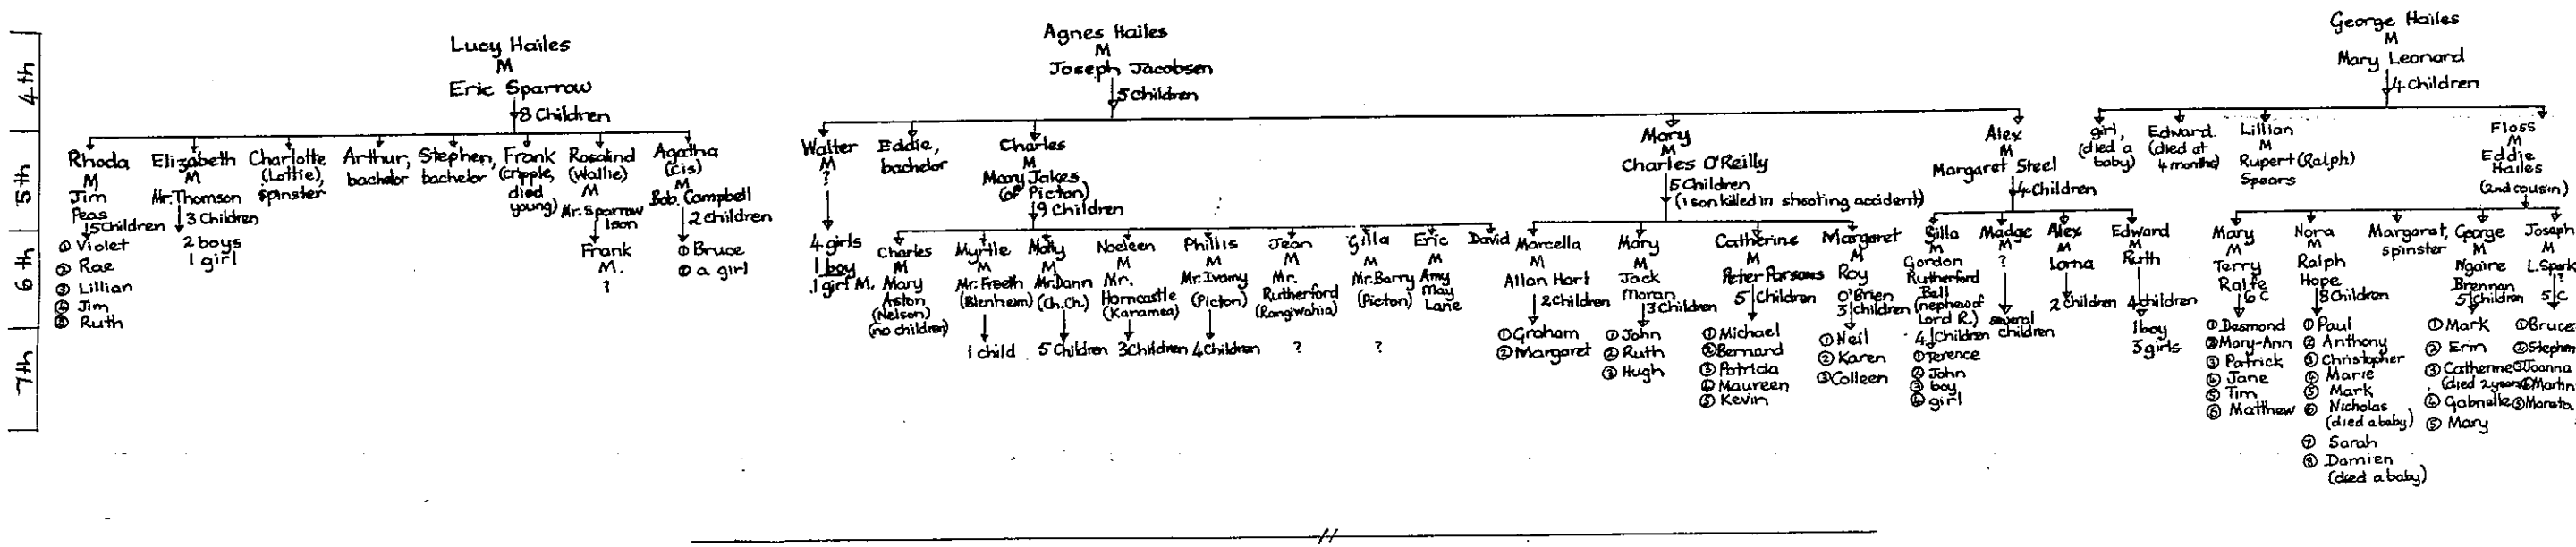 4th
5th
6th
7th
Lucy Hailes
M
Eric Sparrow
8 Children
Rhoda
M
Jim
Peas
5 Children
① Violet
② Rae
③ Lillian
④ Jim
⑤ Ruth
Elizabeth
M
Mr. Thomson
3 Children
2 boys
1 girl
Charlotte
(Lottie),
spinster
Arthur,
bachelor
Stephen,
bachelor
Frank
(cripple,
died
young)
Rosalind
(Wallie)
M
Mr. Sparrow
1 son
Frank
M.
?
Agatha
(Cis)
M
Bob. Campbell
2 children
① Bruce
② a girl
Agnes Hailes
M
Joseph Jacobsen
5 children
Walter
M
?
4 girls
1 boy
1 girl M.
Eddie,
bachelor
Charles
M
Mary Jakes
(of Picton)
9 Children
Charles
M
Mary
Aston
(Nelson)
(no children)
Myrtle
M
Mr. Freeth
(Blenheim)
1 child
Molly
M
Mr. Dann
(Ch.Ch.)
5 Children
Noeleen
M
Mr.
Horncastle
(Karamea)
3 Children
Phillis
M
Mr. Ivamy
(Picton)
4 Children
Jean
M
Mr.
Rutherford
(Rangiwahia)
?
Gilla
M
Mr. Barry
(Picton)
?
Eric
M
Amy
May
Lane
David
Mary
M
Charles O'Reilly
5 Children
(1 son killed in shooting accident)
Marcella
M
Allan Hart
2 Children
① Graham
② Margaret
Mary
M
Jack
Moran
3 Children
① John
② Ruth
③ Hugh
Catherine
M
Peter Parsons
5 Children
① Michael
② Bernard
③ Patricia
④ Maureen
⑤ Kevin
Margaret
M
Roy
O'Brien
3 Children
① Neil
② Karen
③ Colleen
Alex
M
Margaret Steel
4 Children
Gilla
M
Gordon
Rutherford
Bell
(nephew of
Lord R.)
4 Children
① Terence
② John
③ boy
④ girl
Madge
M
?
several
children
Alex
M
Lorna
2 Children
Edward
M
Ruth
4 children
1 boy
3 girls
George Hailes
M
Mary Leonard
4 Children
girl,
(died a
baby)
Edward.
(died at
4 months)
Lillian
M
Rupert (Ralph)
Spears
Floss
M
Eddie
Hailes
(2nd cousin)
Mary
M
Terry
Rolfe
6 C
① Desmond
② Mary-Ann
③ Patrick
④ Jane
⑤ Tim
⑥ Matthew
Nora
M
Ralph
Hope
8 Children
① Paul
② Anthony
③ Christopher
④ Marie
⑤ Mark
⑥ Nicholas
(died a baby)
⑦ Sarah
⑧ Damien
(died a baby)
Margaret,
spinster
George
M
Ngaire
Brennan
5 Children
① Mark
② Erin
③ Catherine
(died 2 years)
④ Gabrielle
⑤ Mary
Joseph
M
5 C
① Bruce
② Stephen
③ Joanna
④ Martin
⑤